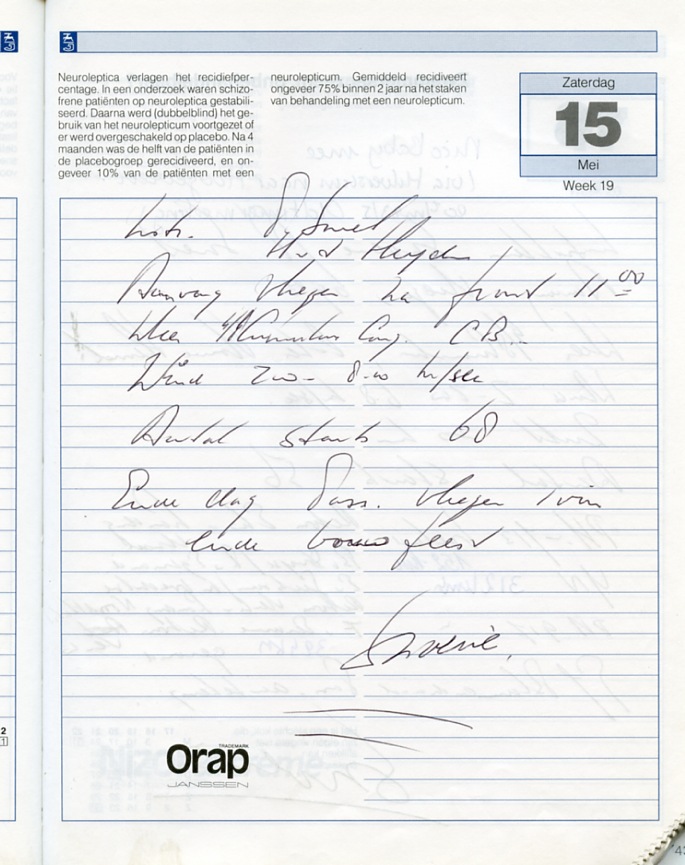 Neuroleptica verlagen het recidiefper-
centage. In een onderzoek waren schizo-
frene patiënten op neuroleptica gestabili-
seerd. Daarna werd (dubbelblind) het ge-
bruik van het neurolepticum voortgezet of
er werd overgeschakeld op placebo. Na 4
maanden was de helft van de patiënten in
de placebogroep gerecidiveerd, en on-
geveer 10% van de patiënten met een
neurolepticum. Gemiddeld recidiveert
ongeveer 75% binnen 2 jaar na het staken
van behandeling met een neurolepticum.
Zaterdag
15
Mei
Week 19
Instr. P. Smet
H v d Heyden
Aanvang vliegen 11 00
Cong. CB.
Wind 200 - 8-10 m/sec
Aantal starts 68
Einde dag Pass. vliegen ivm
einde bouw feest
TRADEMARK
Orap
JANSSEN